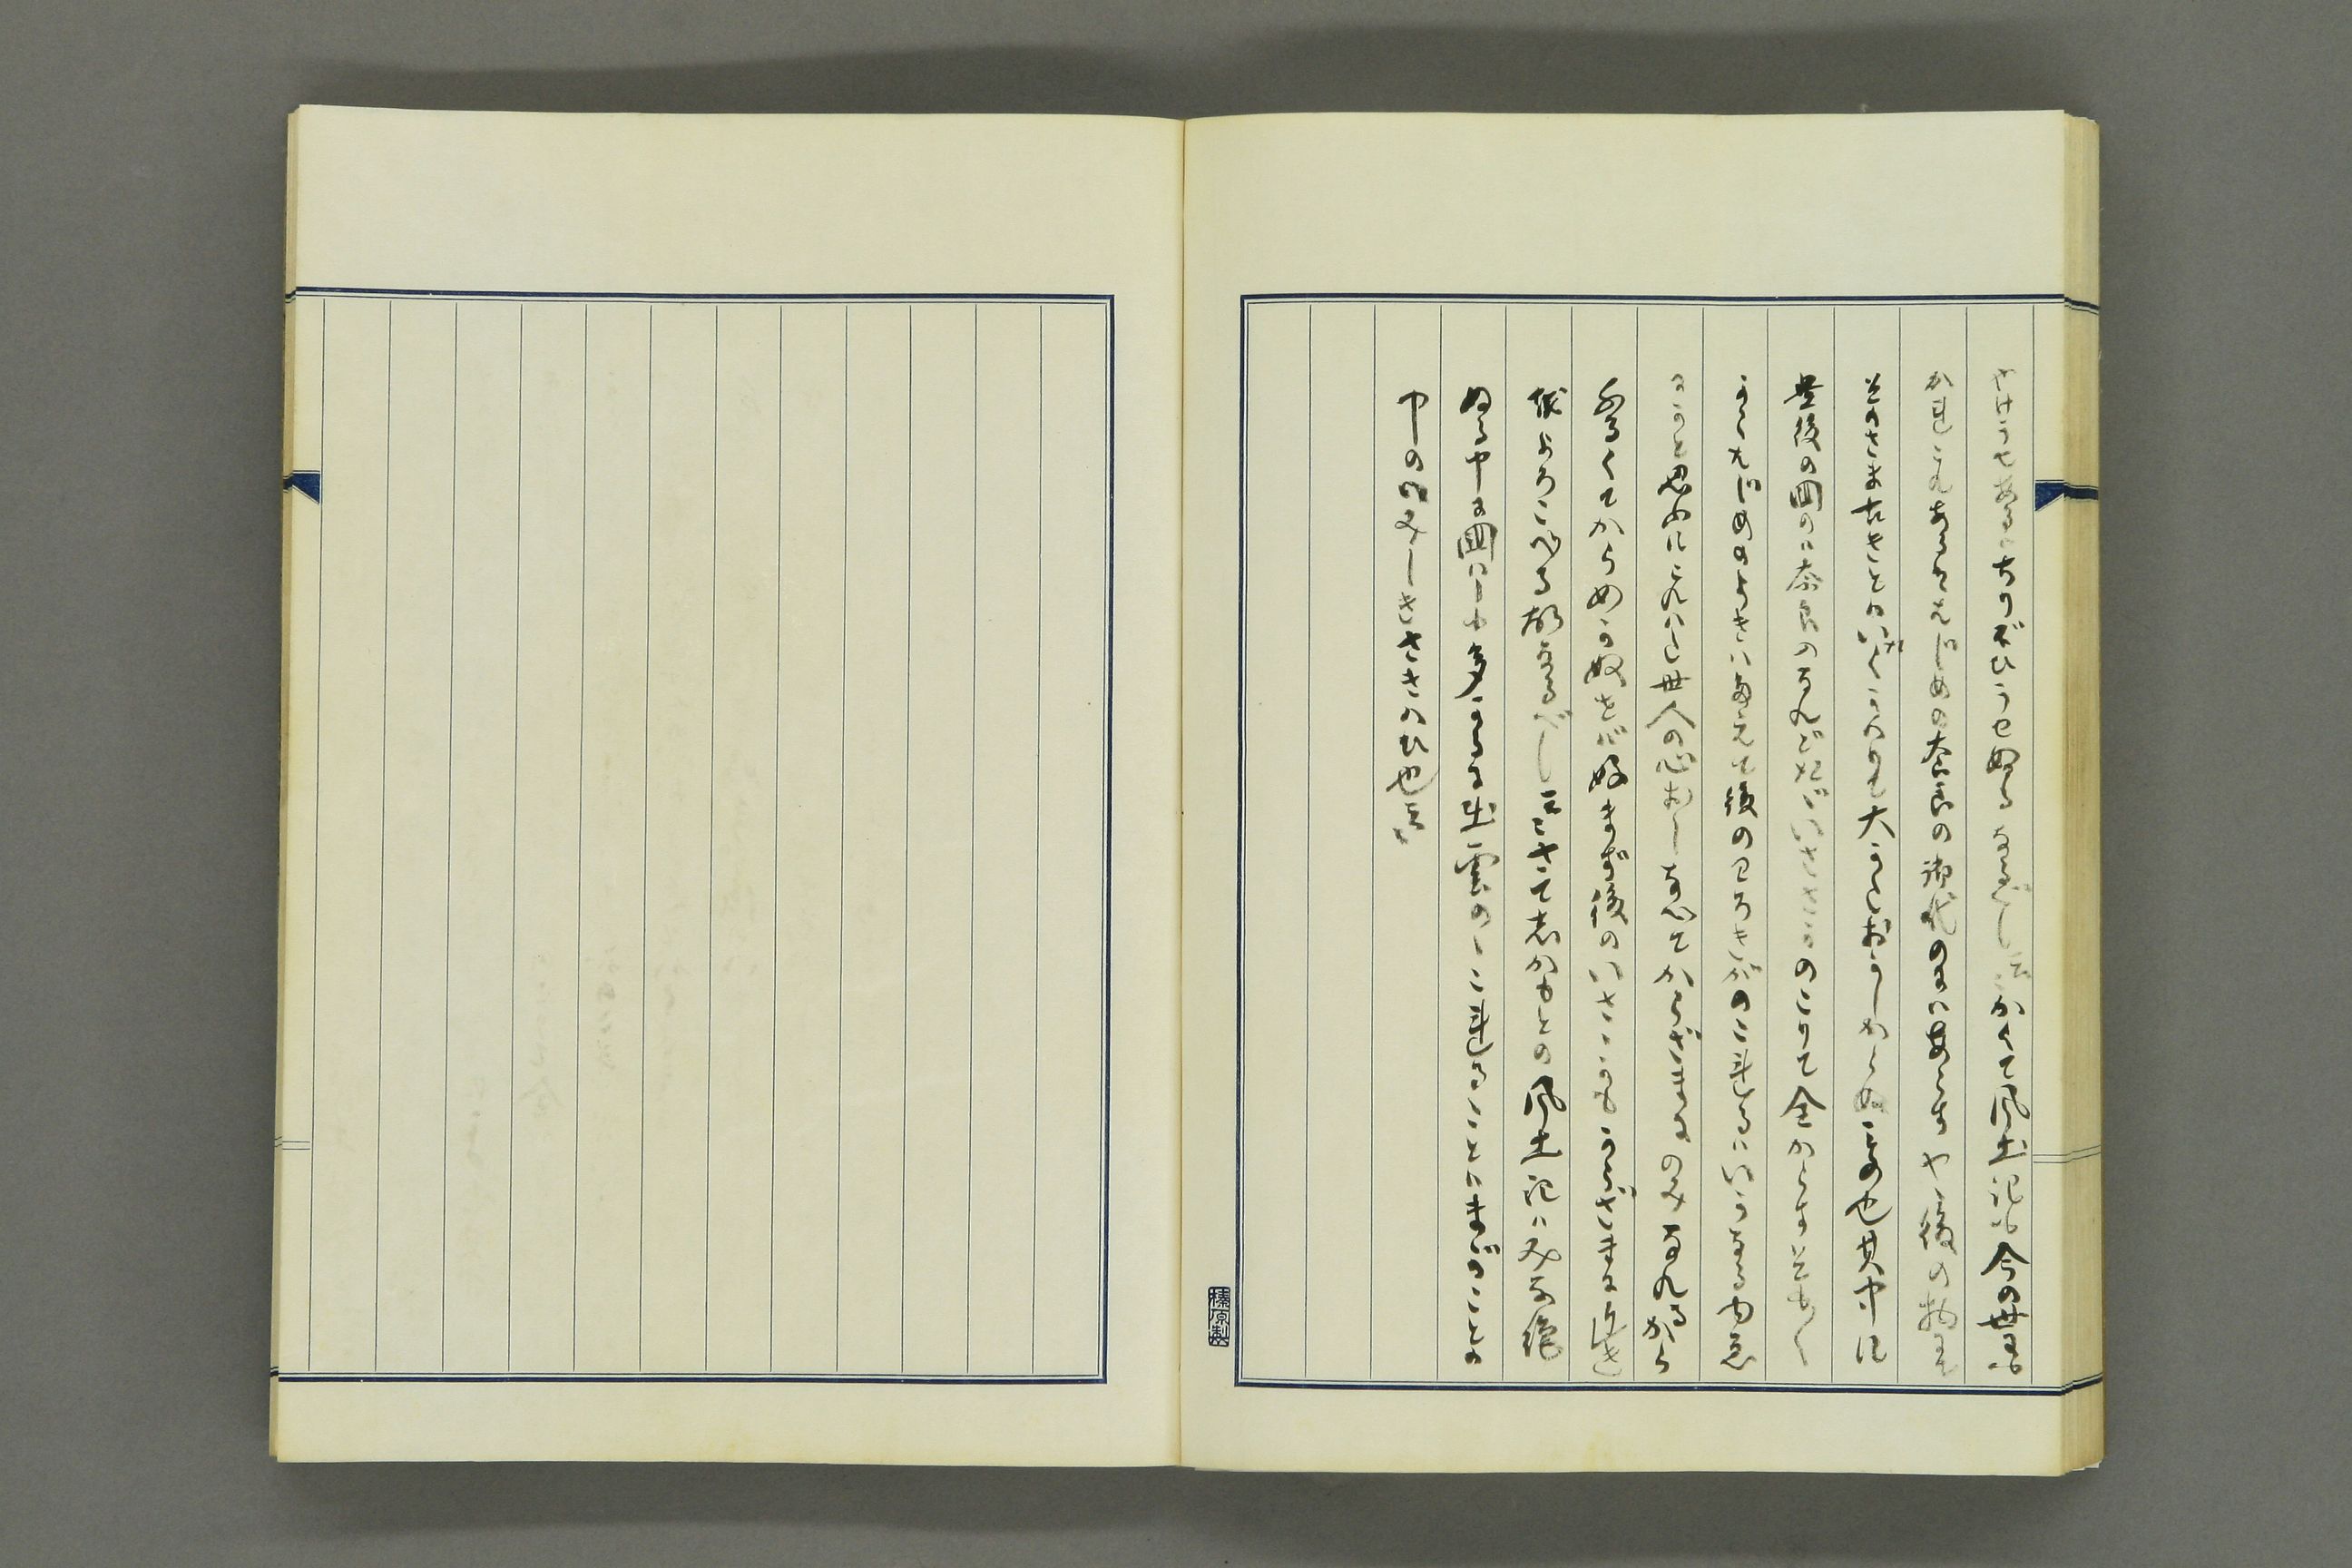 やけうせあるはちりぼひうせぬるなるべし云々かくて風土記も今の世には
かれこれあるははじめの奈良の御代のにはあらずやゝ後の物にて
そのさま古きとはいたくかはりて大かたおかしからぬもの也其中に
豊後の国のは奈良のなれどたゞいさゝかのこりて全からすそもかく
はじめのよきは絶えて後のわろきがのこれるはいかなる由ゑ
にかと思ふにこれはた世人の心おしなべてからざまにのみなれるから
ふるくてからめかぬをば好まず後のいさゝかもからざまに近き
をよろこべる故なるべし云々さてしかもとの風土記はみな絶
ぬる中に国しも多かるに出雲のゝこれることはまがことの
中のうれしきさきはひ也云々
榛原製